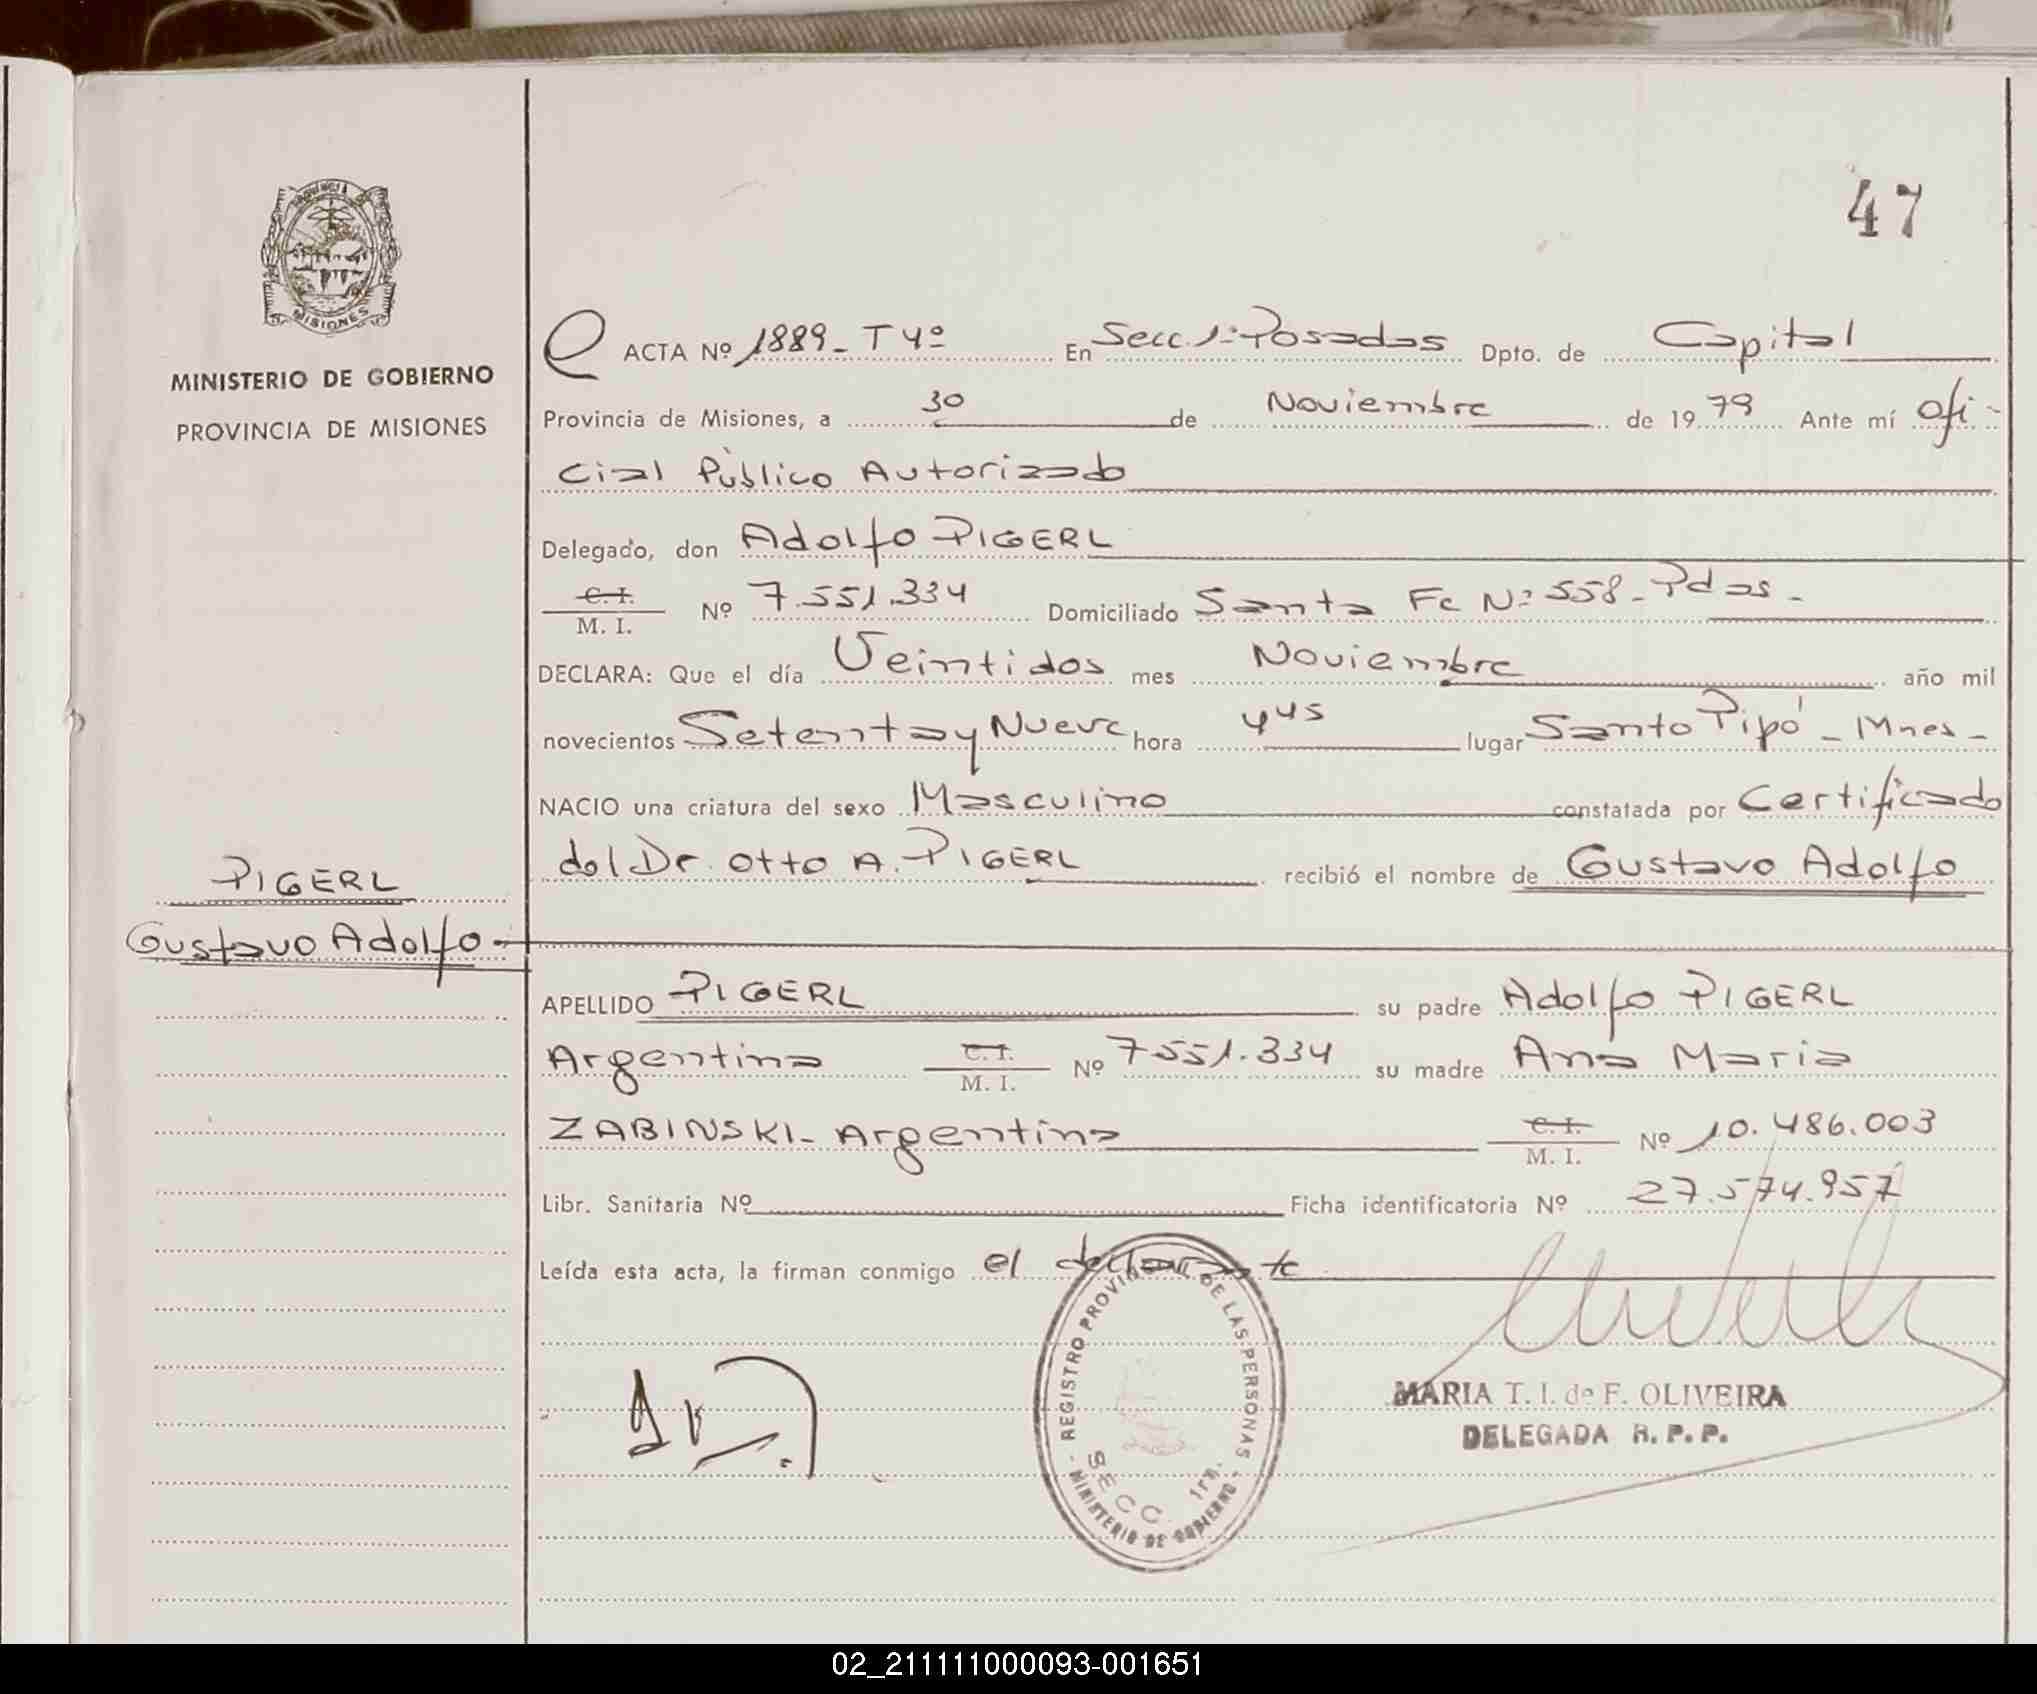 47
PROVINCIA DE
MISIONES
MINISTERIO DE GOBIERNO
PROVINCIA DE MISIONES
ACTA Nº 1889_ T 4º En Secc. 1ª Posadas Dpto. de Capital
Provincia de Misiones, a 30 de Noviembre de 19 79 Ante mí Ofi-
cial Público Autorizado
Delegado, don Adolfo PIGERL
C. I.
M. I. Nº 7.551.334 Domiciliado Santa Fe Nº 558_ Pdas_
DECLARA: Que el día Veintidos mes Noviembre año mil
novecientos Setenta y Nueve hora 4 45 lugar Santo Pipó _ Mnes_
NACIO una criatura del sexo Masculino constatada por Certificado
del Dr. Otto A. PIGERL recibió el nombre de Gustavo Adolfo
PIGERL
Gustavo Adolfo
APELLIDO PIGERL su padre Adolfo PIGERL
Argentino C. I. M. I. Nº 7551.334 su madre Ana Maria
ZABINSKI_ Argentina C. I. M. I. Nº 10.486.003
Libr. Sanitaria Nº Ficha identificatoria Nº 27.574.957
Leída esta acta, la firman conmigo el declarante
REGISTRO PROVINCIAL DE LAS PERSONAS
SECC. 1ra.
- MINISTERIO DE GOBIERNO -
MARIA T. I. de F. OLIVEIRA
DELEGADA R. P. P.
02_211111000093-001651